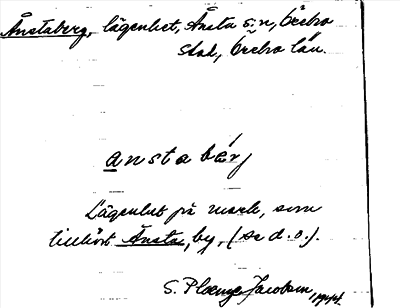 Ånstaberg, lägenhet, Ånsta s:n, Örebro
stad, Örebro län.
ansta bérj
Lägenhet på mark, som
tillhört Ånsta, by, (se d.o.).
S. Jacobson, 1944.